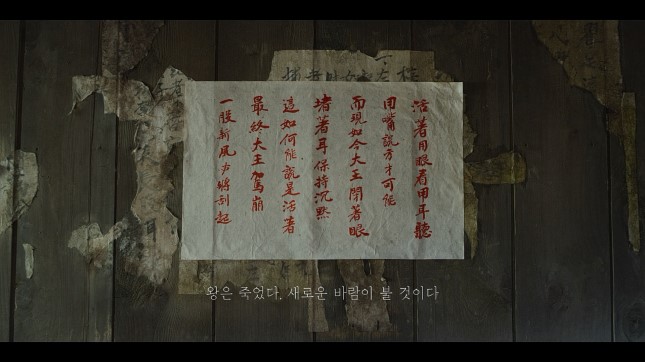 活著用眼看用耳聽
用嘴說方才可能
而現如今大王閉著眼
堵著耳保持沉默
這如何能說是活著
最終大王駕崩
一股新風亦將刮起
왕은 죽었다. 새로운 바람이 불 것이다